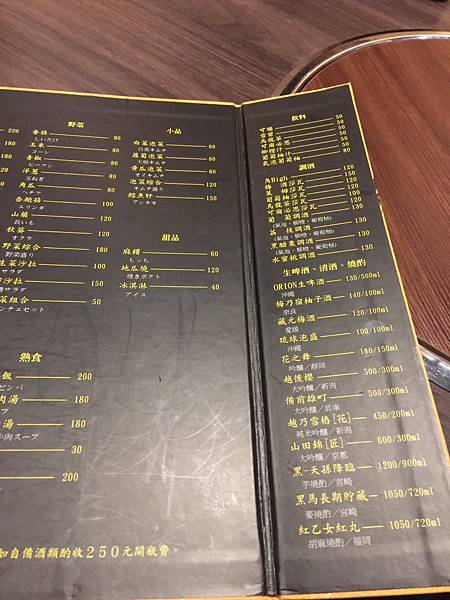 野菜
220
香菇 80
しいたけ
180
玉米 80
コーン
180
青椒 80
ピーマン
洋蔥 80
玉ねぎ
角瓜 80
杏鮑菇 100
エリンギ
山藥 120
長いも
秋葵 80
オクラ
野菜綜合 180
野菜盛り
生菜沙拉 100
サラダ
沙拉 150
サラダ
菜組合 50
ンチュセット
熟食
飯 200
ビンバ
肉湯 180
ープ
湯 180
牛肉スープ
30
200
如自備酒類酌收250元開瓶費。
小品
白菜泡菜 60
白菜キムチ
蘿蔔泡菜 60
大根キムチ
黃瓜泡菜 60
オイキムチ
泡菜綜合 120
キムチ盛り
鮟魚肝 150
アンキモ
甜品
麻糬 60
もっち
地瓜燒 120
焼きポテト
冰淇淋 40
アイス
飲料
可樂 50
雪碧 50
烏龍茶 50
可爾必思 50
柳橙汁 50
葡萄柚汁 50
氣泡葡萄柚 80
調酒
角High 120
梅酒莎瓦 150
葡萄柚莎瓦 120
烏龍茶莎瓦 120
可爾必思莎瓦 120
荔枝調酒 120
(氣泡、柳橙、葡萄柚)
黑醋栗調酒 120
(氣泡、柳橙、葡萄柚)
水蜜桃調酒 120
(氣泡、柳橙、葡萄柚)
生啤酒、清酒、燒酌
ORION生啤酒 130/500ml
沖繩
梅乃宿柚子酒 140/100ml
奈良
藏元梅酒 120/100ml
愛媛
琉球泡盛 100/100ml
沖繩
花之舞 180/150ml
吟釀/靜岡
越後櫻 500/300ml
大吟釀/新潟
備前雄町 500/300ml
大吟釀/兵庫
越乃雪椿[花] 450/200ml
純米吟釀/新潟
山田錦[匠] 600/300ml
大吟釀/京都
黑-天孫降臨 1200/900ml
芋燒酌/宮崎
黑馬長期貯藏 1050/720ml
麥燒酌/宮崎
紅乙女紅丸 1050/720ml
胡麻燒酌/福岡